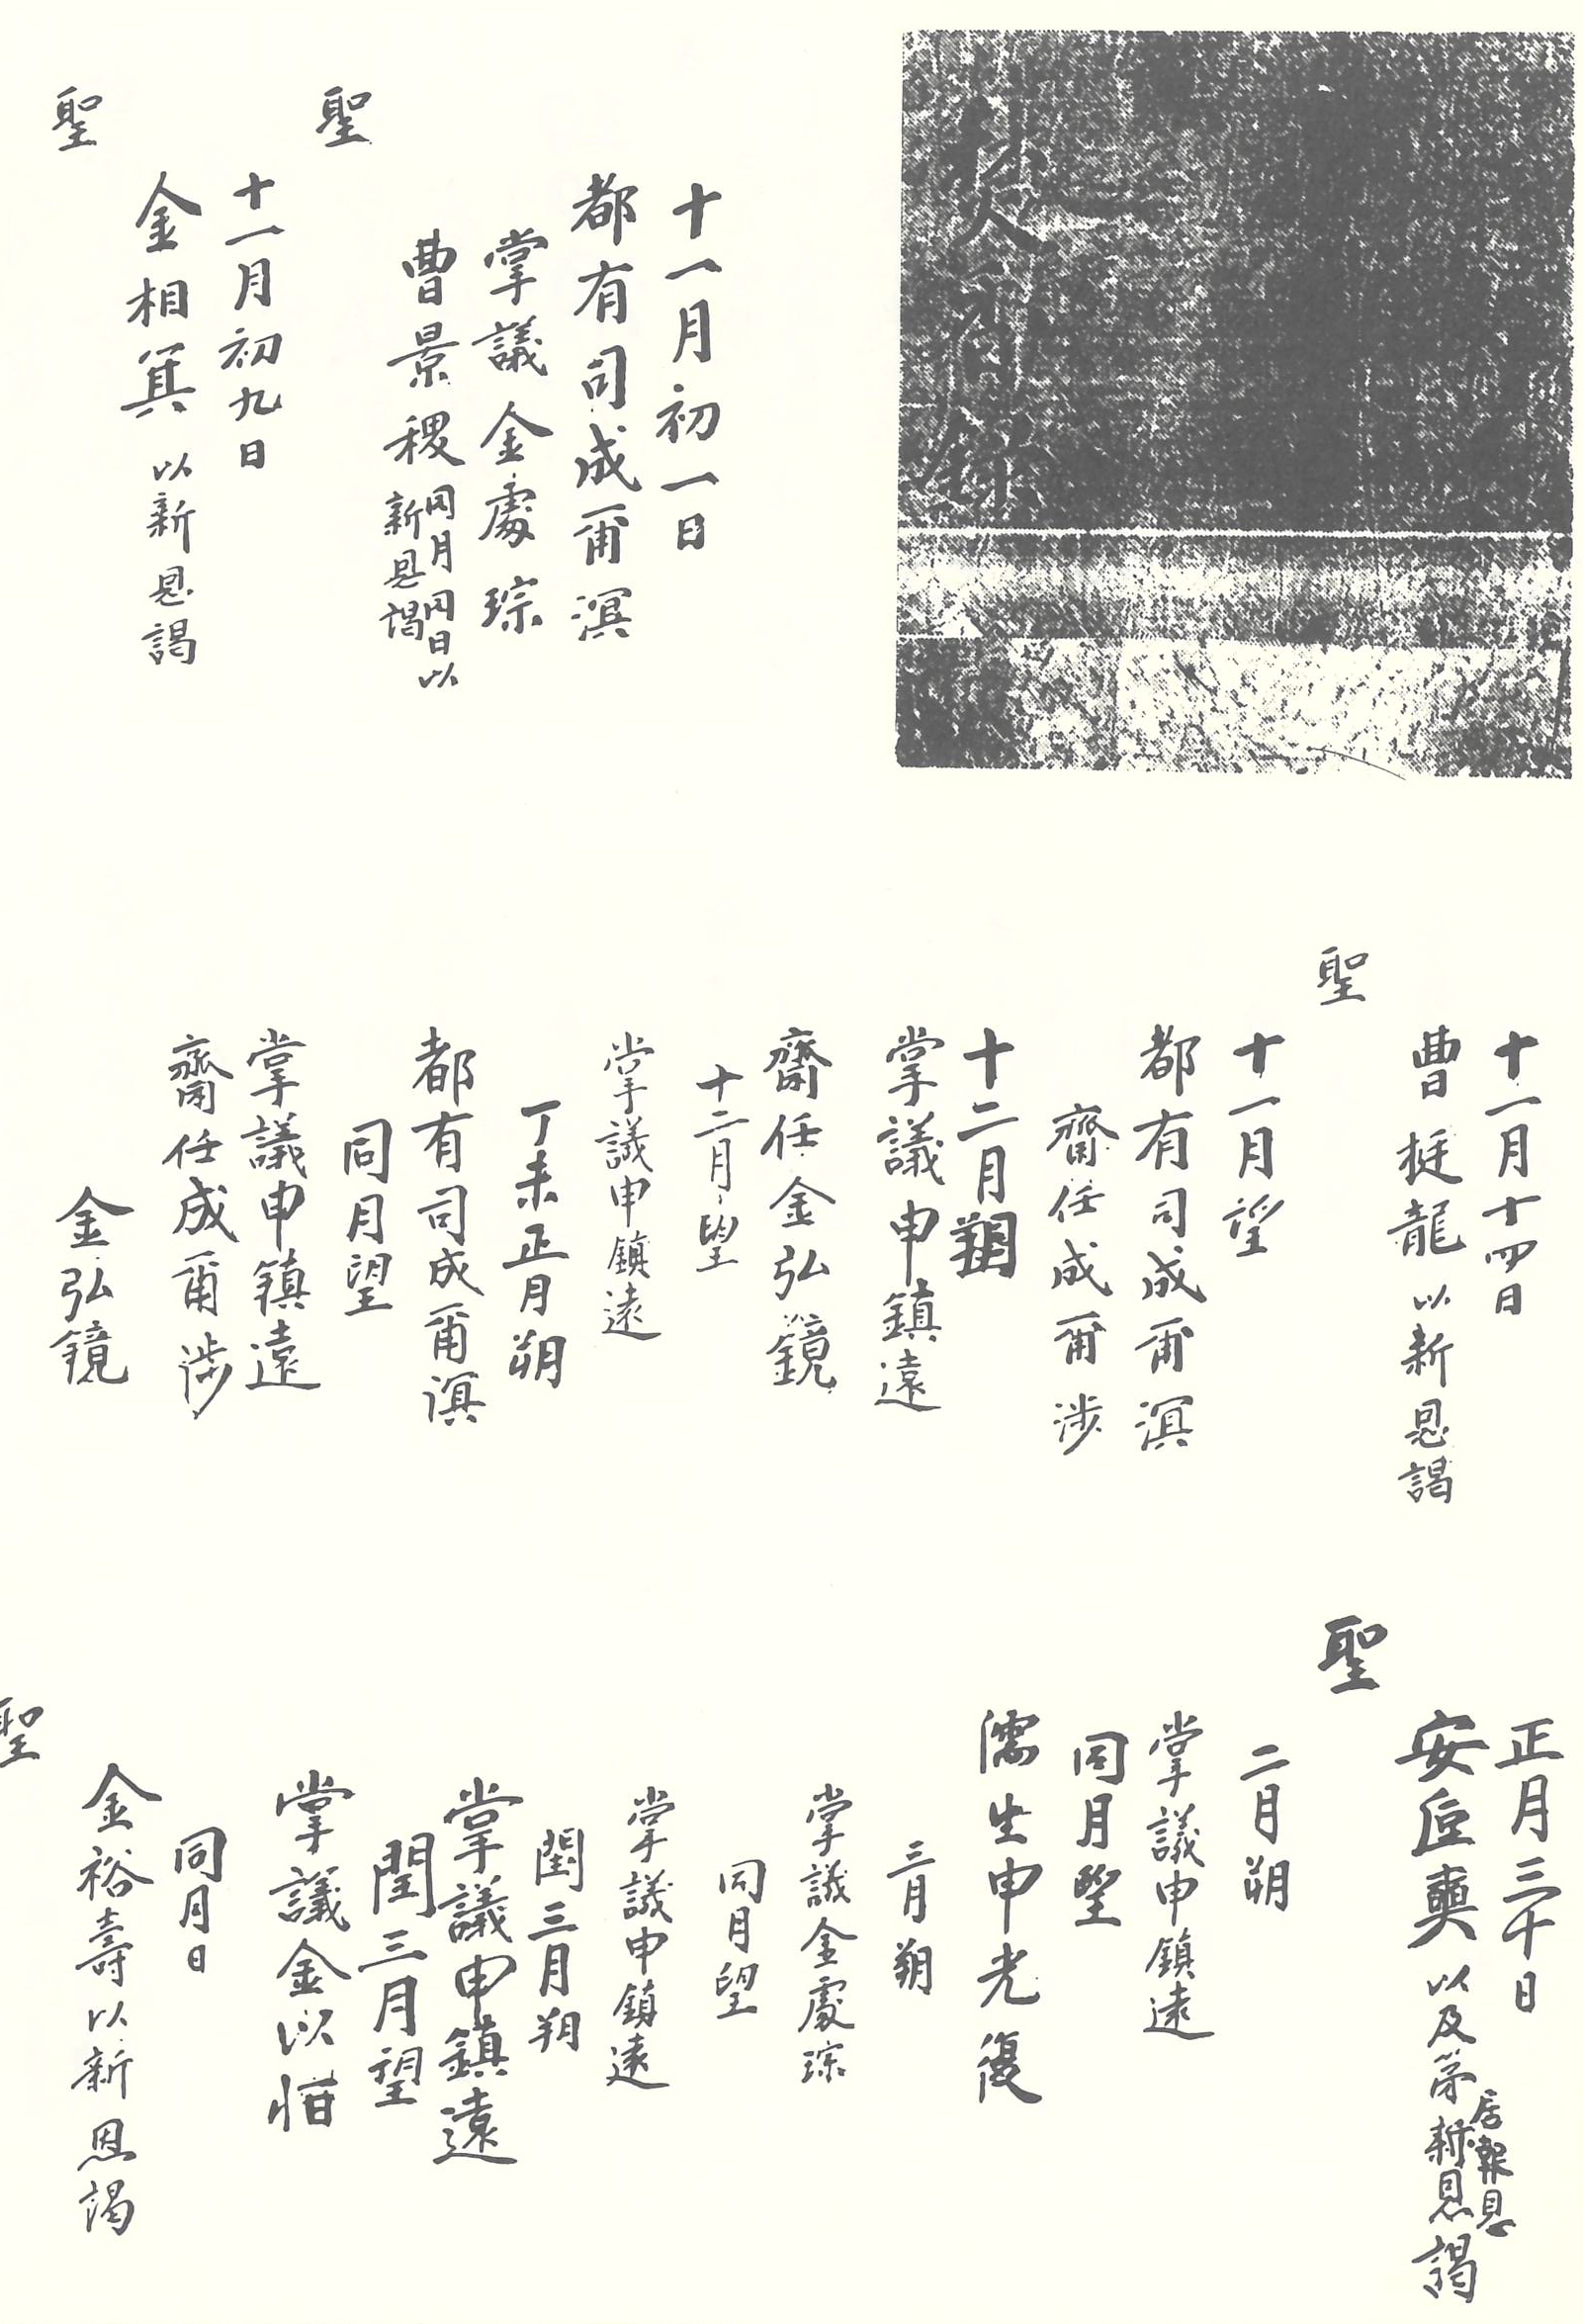 焚香錄
十一月初一日
都有司成爾溟
掌議金處琮
曹景稷 同月同日以
新恩謁
聖
十一月初九日
金相箕 以新恩謁
聖
十一月十四日
曹挺龍 以新恩謁
聖
十一月望
都有司成爾溟
齋任成爾涉
十二月朔
掌議申鎮遠
齋任金弘鏡
十二月望
掌議申鎮遠
丁未正月朔
都有司成爾溟
同月望
掌議申鎮遠
齋任成爾涉
金弘鏡
正月三十日
安后奭 以及第新恩謁
報恩
聖
二月朔
掌議申鎮遠
同月望
儒生申光復
三月朔
掌議金處琮
同月望
掌議申鎮遠
閏三月朔
掌議申鎮遠
閏三月望
掌議金以
同月日
金裕壽 以新恩謁
聖